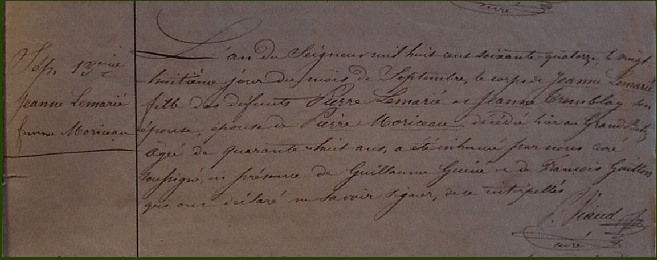 Sép. 1ère
Jeanne Lemarié
femme Moriceau
L'an du Seigneur mil huit cent soixante-quatorze, le vingt
huitième jour du mois de Septembre, le corps de Jeanne Lemarié
fille des défunts Pierre Lemarié et Jeanne Tremblay son
épouse, épouse de Pierre Moriceau, décédé hier au Grand
âgée de quarante-huit ans, a été inhumé par nous curé
soussigné, en présence de Guillaume Guéné et de François Guillon
qui ont déclaré ne savoir signer, de ce interpellés
Viaud
curé